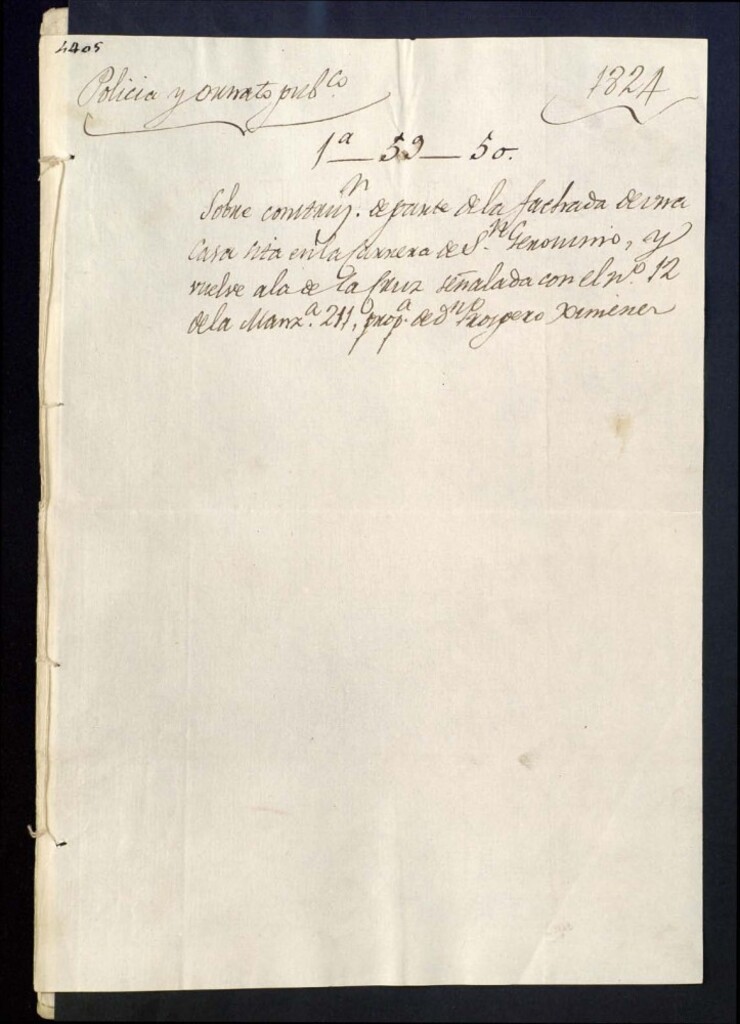 4405
Policia y ornato pub.co
1824
1.a — 59 — 50.
Sobre construz.n de parte de la fachada de una
Casa sita en la Carrera de S.n Geronimo, y
vuelve a la de la Cruz señalada con el n.o 12
de la Manz.a 211, prop.a de d.n Prospero Ximenez